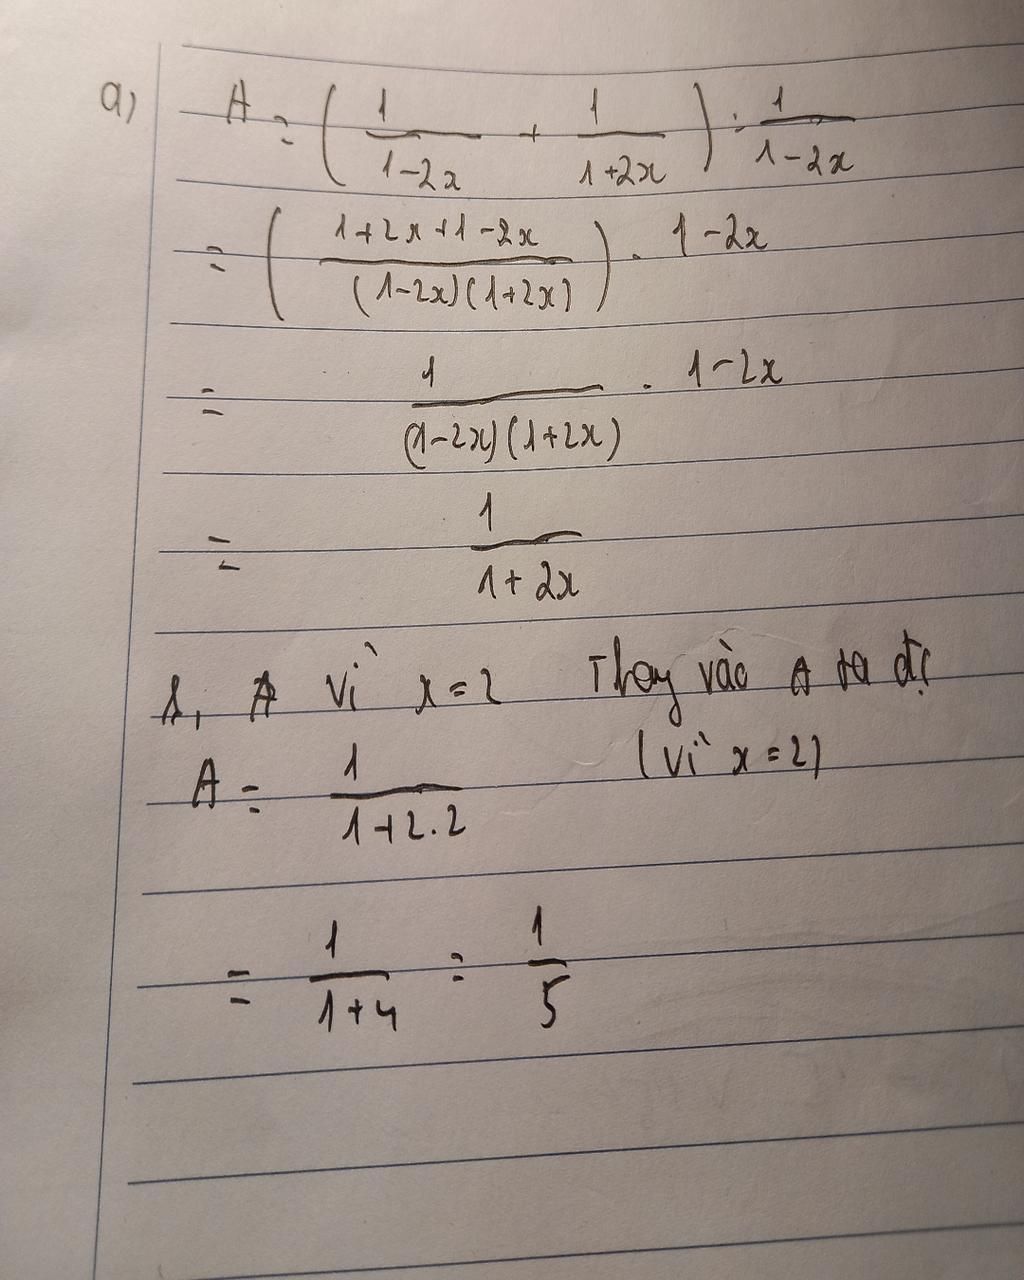 a) A = ( 1/(1-2x) + 1/(1+2x) ) : 1/(1-2x)
= ( (1+2x+1-2x)/((1-2x)(1+2x)) ) . 1-2x
= 1/((1-2x)(1+2x)) . 1-2x
= 1/(1+2x)
A vì x=2 Thay vào A ta đc
A = 1/(1+2.2) (vì x=2)
= 1/(1+4) = 1/5